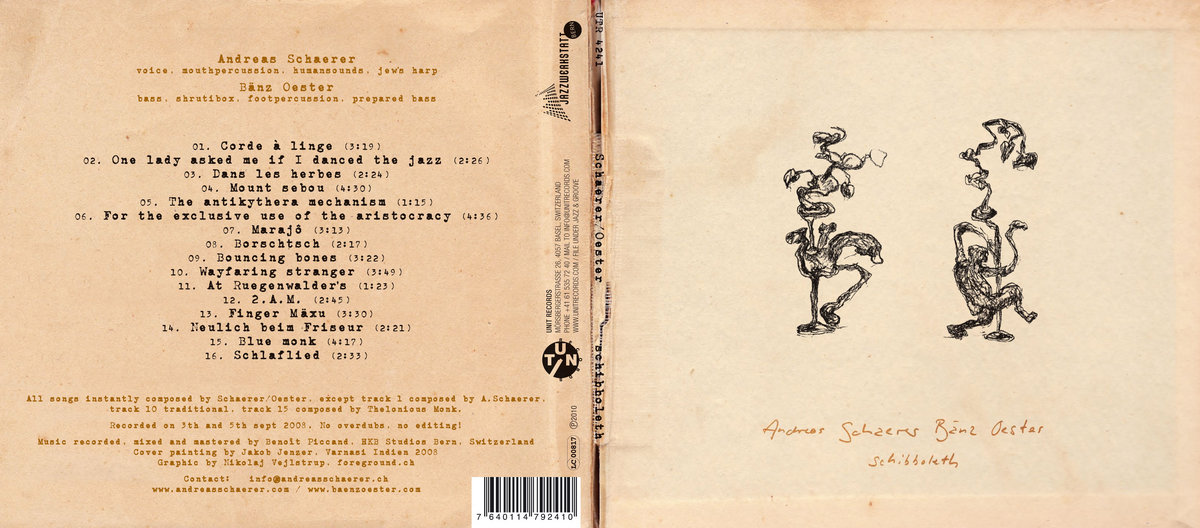 Andreas Schaerer
voice, mouthpercussion, humansounds, jew's harp
Bänz Oester
bass, shrutibox, footpercussion, prepared bass
01. Corde à linge (3:19)
02. One lady asked me if I danced the jazz (2:26)
03. Dans les herbes (2:24)
04. Mount sebou (4:30)
05. The antikythera mechanism (1:15)
06. For the exclusive use of the aristocracy (4:36)
07. Marajô (3:13)
08. Borschtsch (2:17)
09. Bouncing bones (3:22)
10. Wayfaring stranger (3:49)
11. At Ruegenwalder's (1:23)
12. 2.A.M. (2:45)
13. Finger Mäxu (3:30)
14. Neulich beim Friseur (2:21)
15. Blue monk (4:17)
16. Schlaflied (2:33)
All songs instantly composed by Schaerer/Oester, except track 1 composed by A.Schaerer,
track 10 traditional, track 15 composed by Thelonious Monk.
Recorded on 3th and 5th sept 2008, No overdubs, no editing!
Music recorded, mixed and mastered by Benoît Piccand, HKB Studios Bern, Switzerland
Cover painting by Jakob Jenzer, Varnasi Indien 2008
Graphic by Nikolaj Vejlstrup, foreground.ch
Contact: info@andreasschaerer.ch
www.andreasschaerer.com / www.baenzoester.com
JAZZWERKSTATT
BERN
UNIT RECORDS
MÖRSBERGERSTRASSE 26, 4057 BASEL, SWITZERLAND
PHONE +41 61 535 72 40 / MAIL TO INFO@UNITRECORDS.COM
WWW.UNITRECORDS.COM / FILE UNDER JAZZ & GROOVE
UNIT
LC 00817 Ⓟ2010
7 640114 792410
UTR 4241
Schaerer/Oester
schibboleth
Andreas Schaerer Bänz Oester
schibboleth